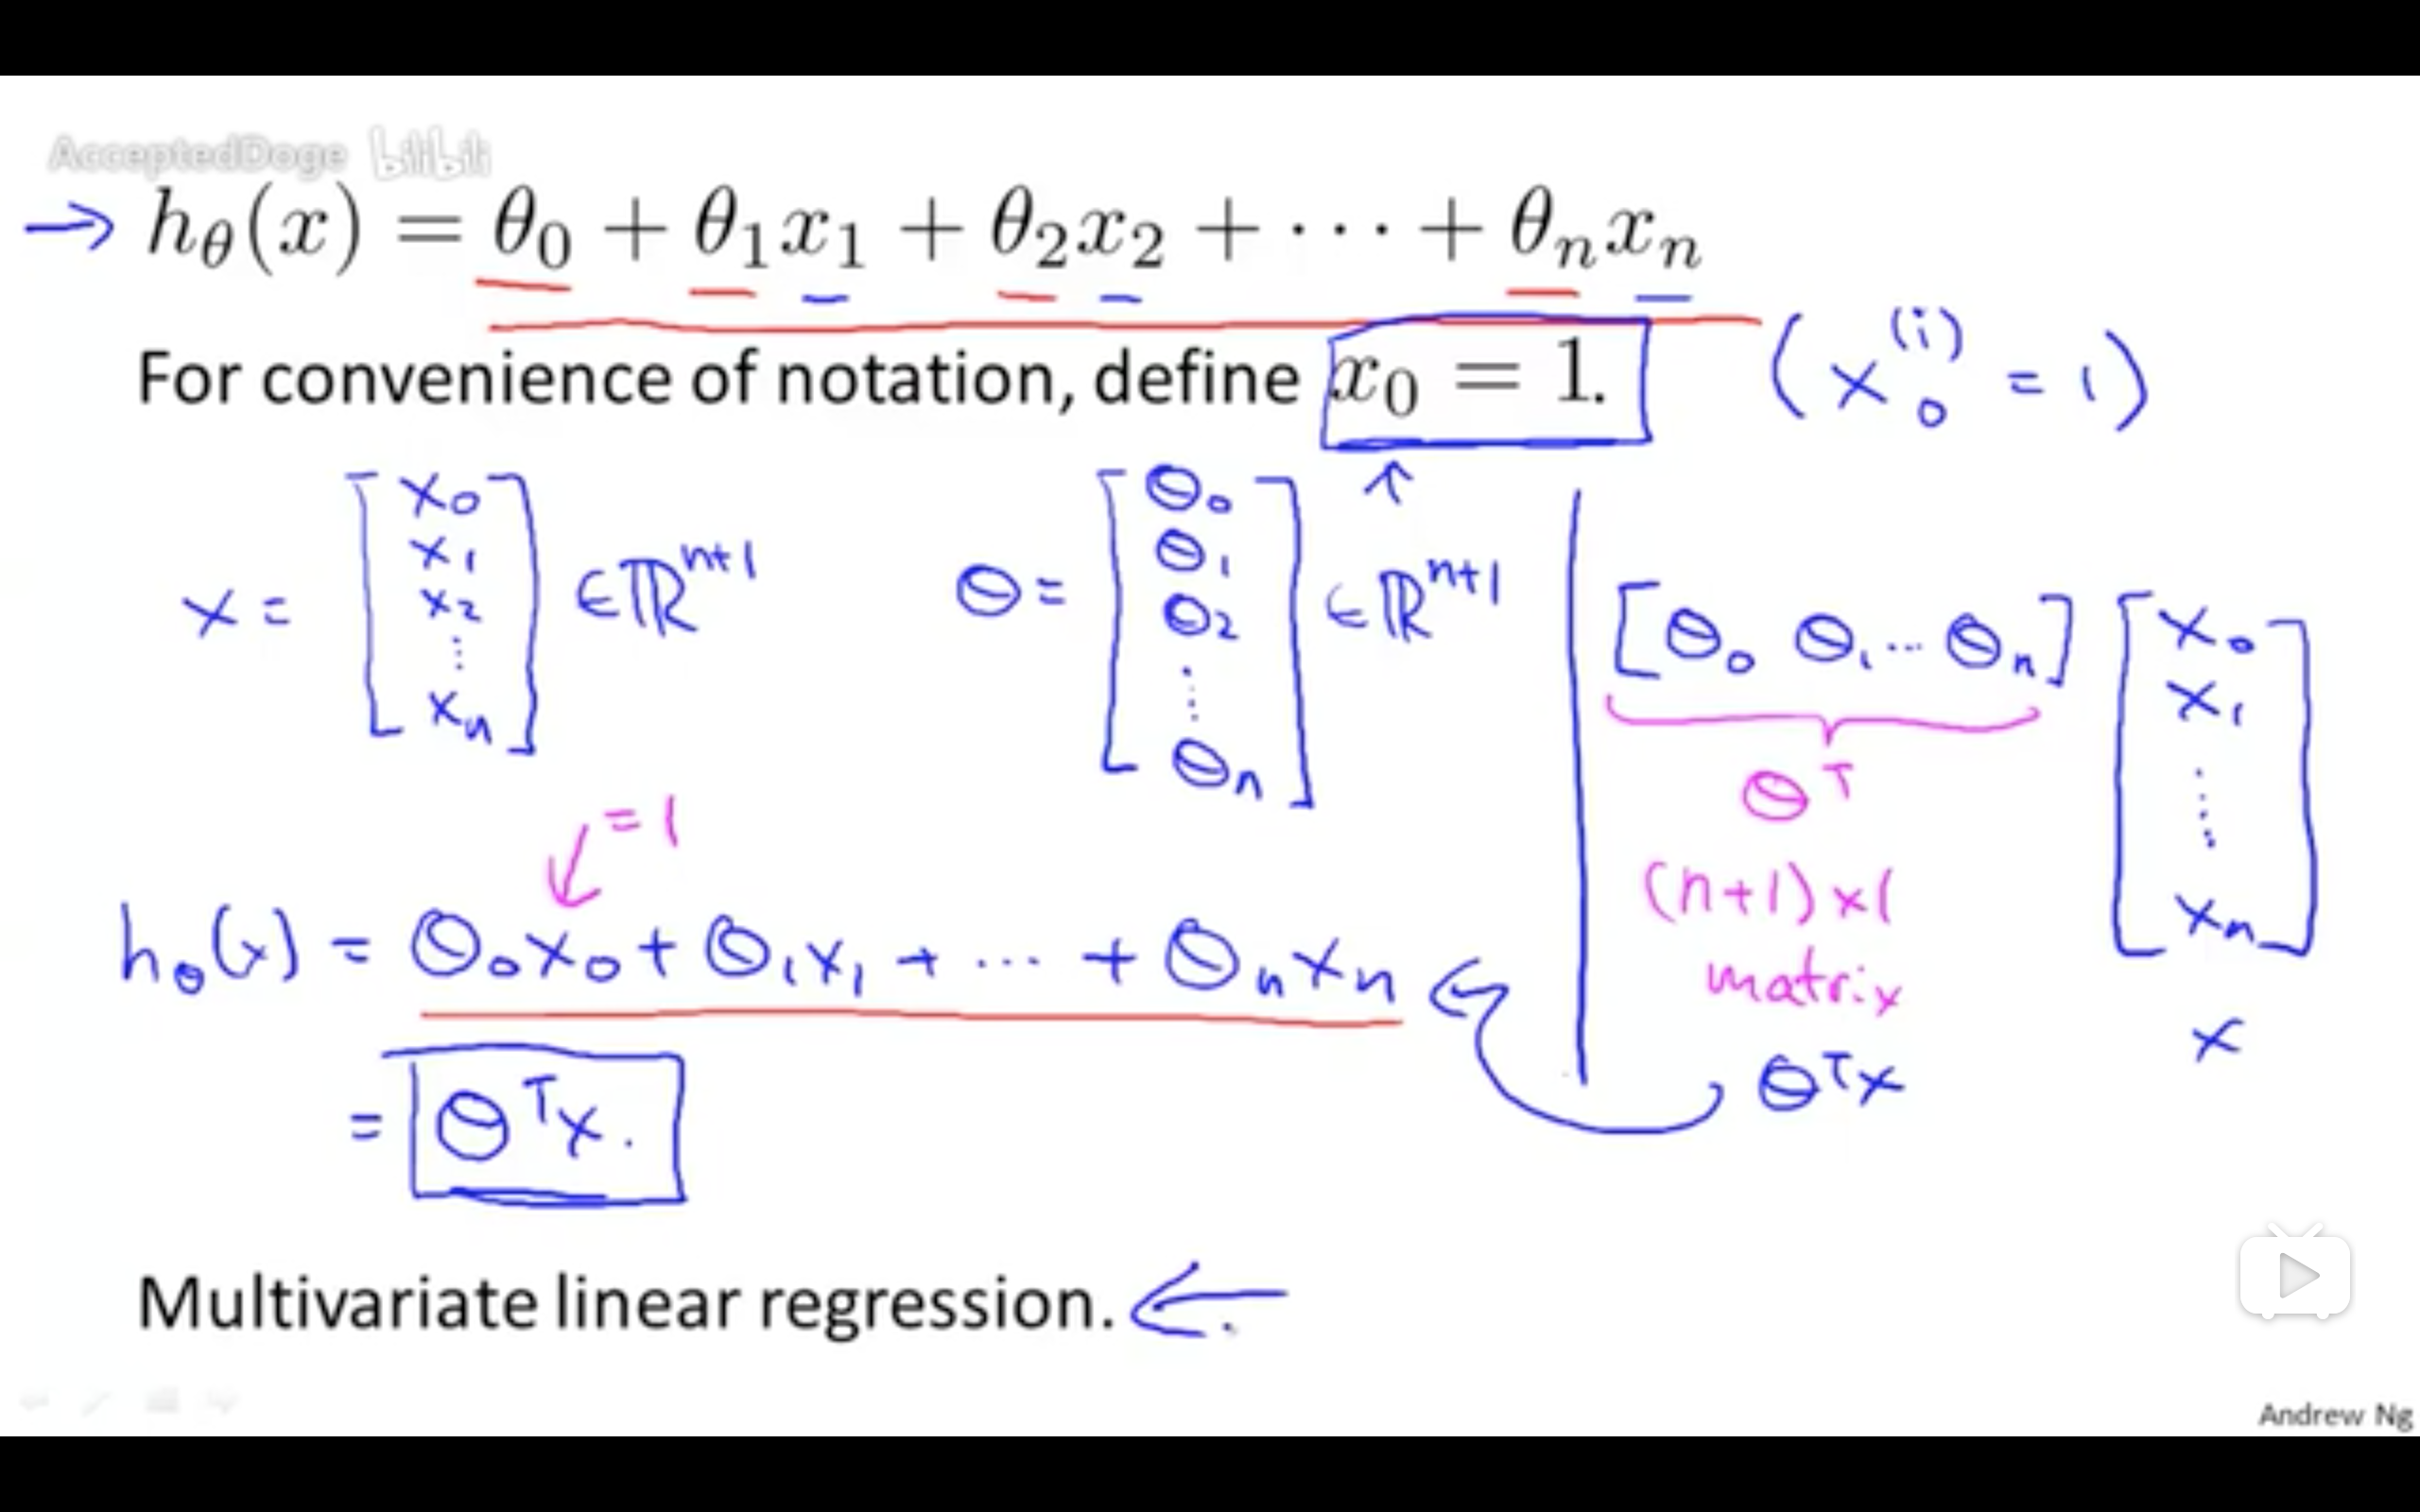 AcceptedDoge bilibili
→ hθ(x) = θ₀ + θ₁x₁ + θ₂x₂ + ⋯ + θₙxₙ
For convenience of notation, define x₀ = 1. (x₀⁽ⁱ⁾ = 1)
x = [x₀ x₁ x₂ ⋮ xₙ] ∈ ℝⁿ⁺¹
θ = [θ₀ θ₁ θ₂ ⋮ θₙ] ∈ ℝⁿ⁺¹
= 1
hθ(x) = θ₀x₀ + θ₁x₁ + ⋯ + θₙxₙ
= θᵀx.
[θ₀ θ₁ ⋯ θₙ] [x₀ x₁ ⋮ xₙ]
θᵀ
(n+1) × 1
matrix
x
θᵀx
Multivariate linear regression. ←
Andrew Ng